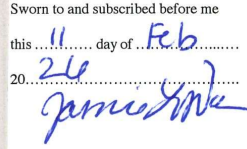 Sworn to and subscribed before me
this .. 11 ...... day of .. Feb ..........
20.. 26 ..............................
Jamie